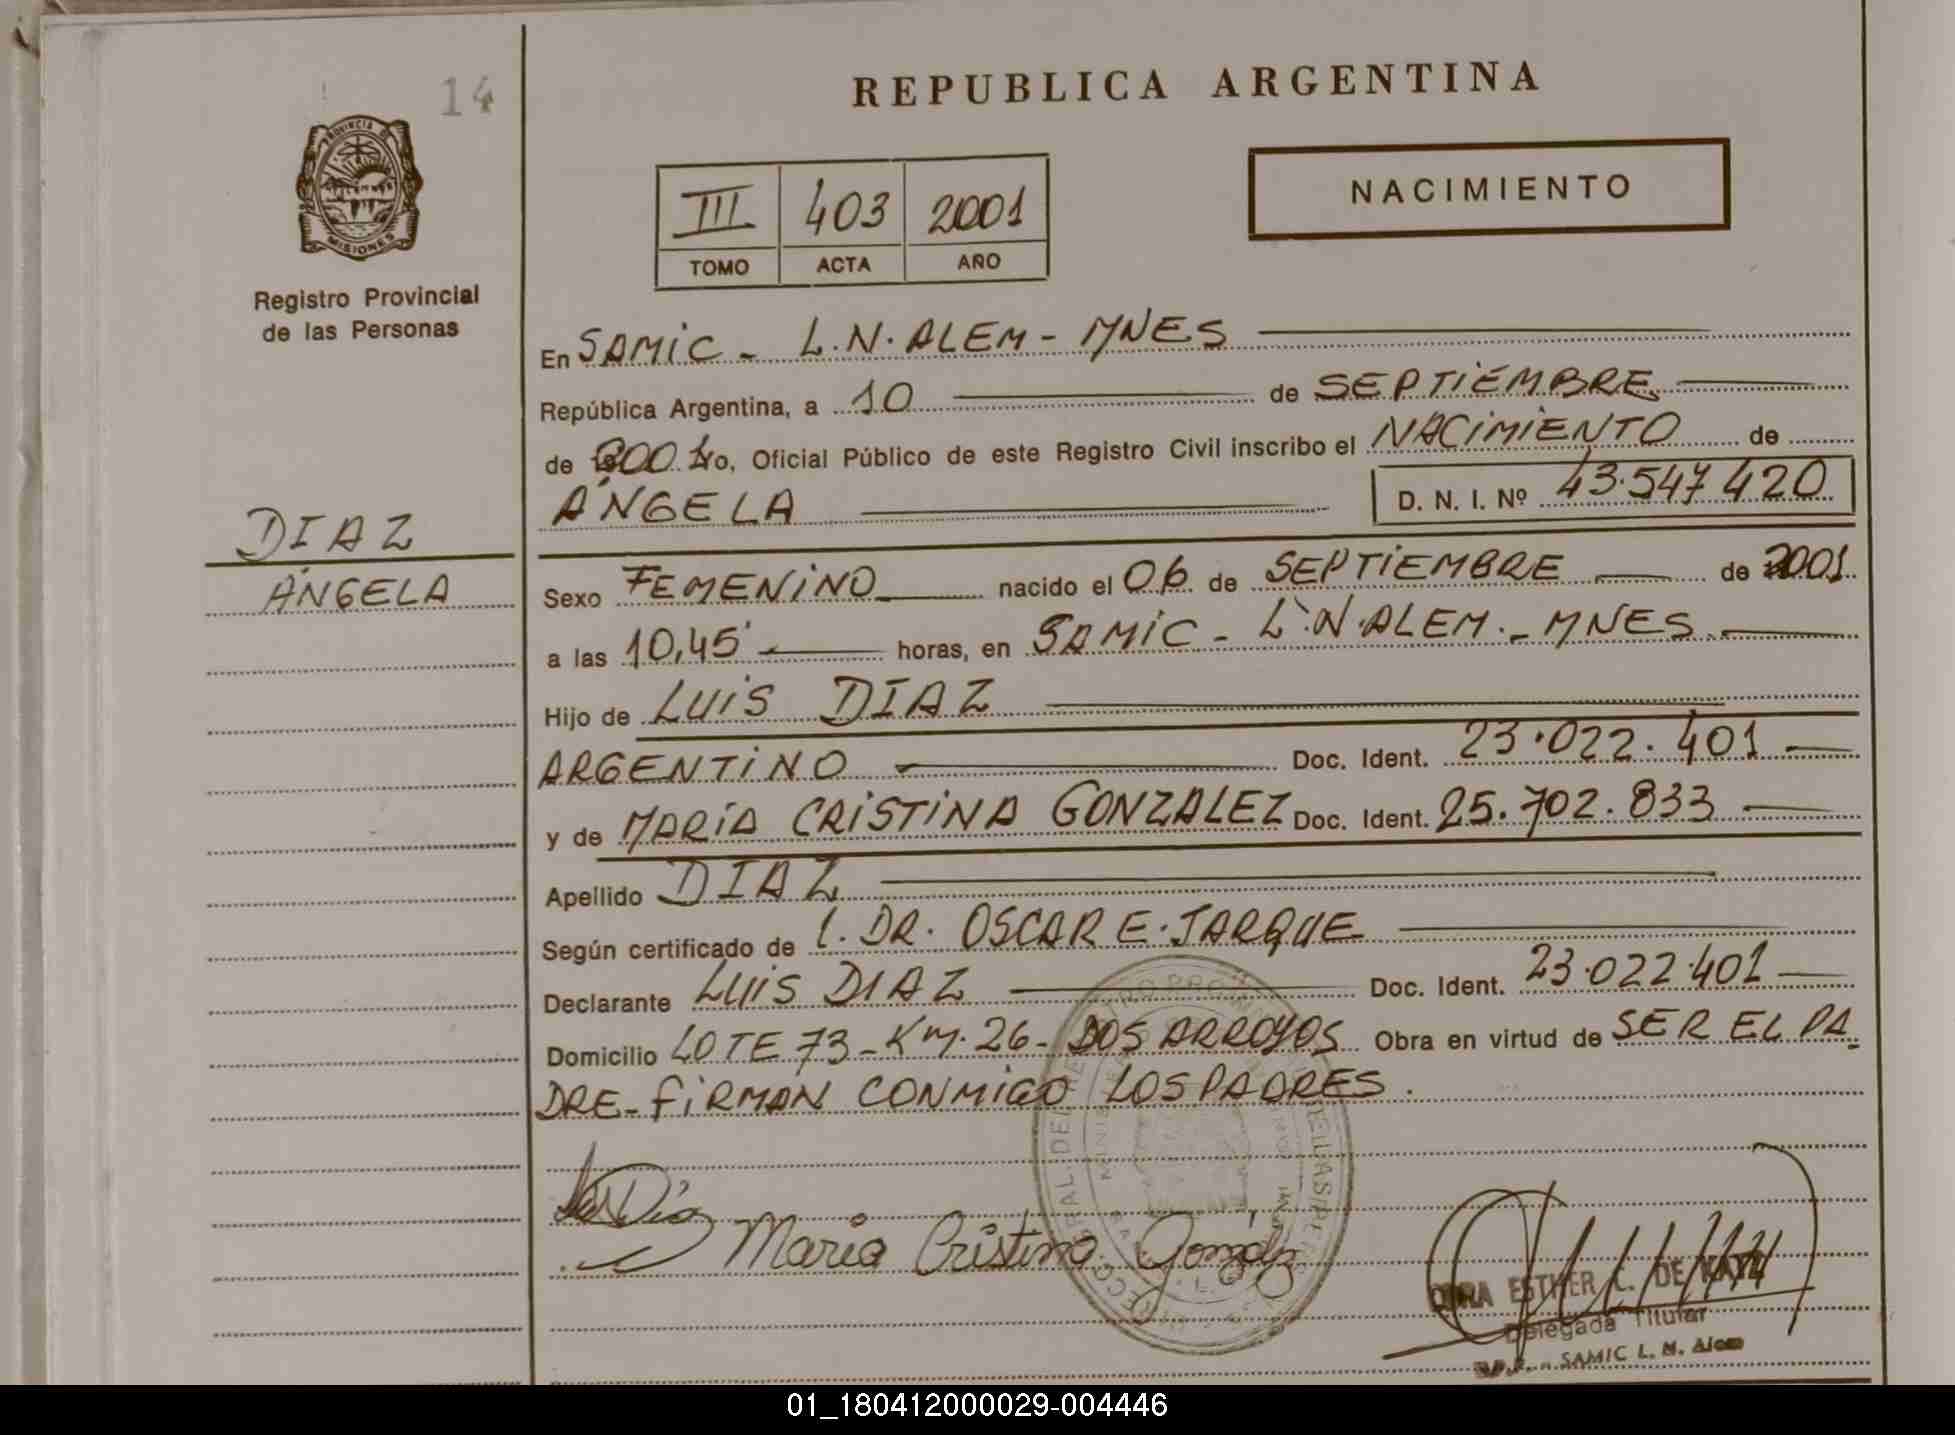 14
REPUBLICA ARGENTINA
PROVINCIA DE
MISIONES
Registro Provincial
de las Personas
III 403 2001
TOMO ACTA AÑO
NACIMIENTO
En SAMIC - L.N. ALEM - MNES
República Argentina, a 10 de SEPTIEMBRE
de 2001 Yo, Oficial Público de este Registro Civil inscribo el NACIMIENTO de
ÁNGELA D. N. I. Nº 43.547.420
DIAZ
ÁNGELA
Sexo FEMENINO nacido el 06 de SEPTIEMBRE de 2001
a las 10,45 horas, en SAMIC - L.N. ALEM. - MNES
Hijo de LUIS DIAZ
ARGENTINO Doc. Ident. 23.022.401
y de MARÍA CRISTINA GONZALEZ Doc. Ident. 25.702.833
Apellido DIAZ
Según certificado de l. DR. OSCAR E. JARQUE
Declarante LUIS DIAZ Doc. Ident. 23.022.401
Domicilio LOTE 73 - KM. 26 - DOS ARROYOS Obra en virtud de SER EL PA-
DRE - FIRMAN CONMIGO LOS PADRES.
Luis Díaz
Maria Cristina Gonzalez
ESTHER L. DE
Delegada Titular
SAMIC L. N. Alem
01_180412000029-004446